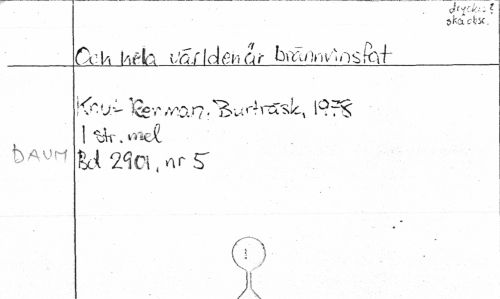 Och hela världen är brännvinsfat
Knut Kerman, Burträsk, 1978
1 str. mel
DAUM Bd 2901, nr 5